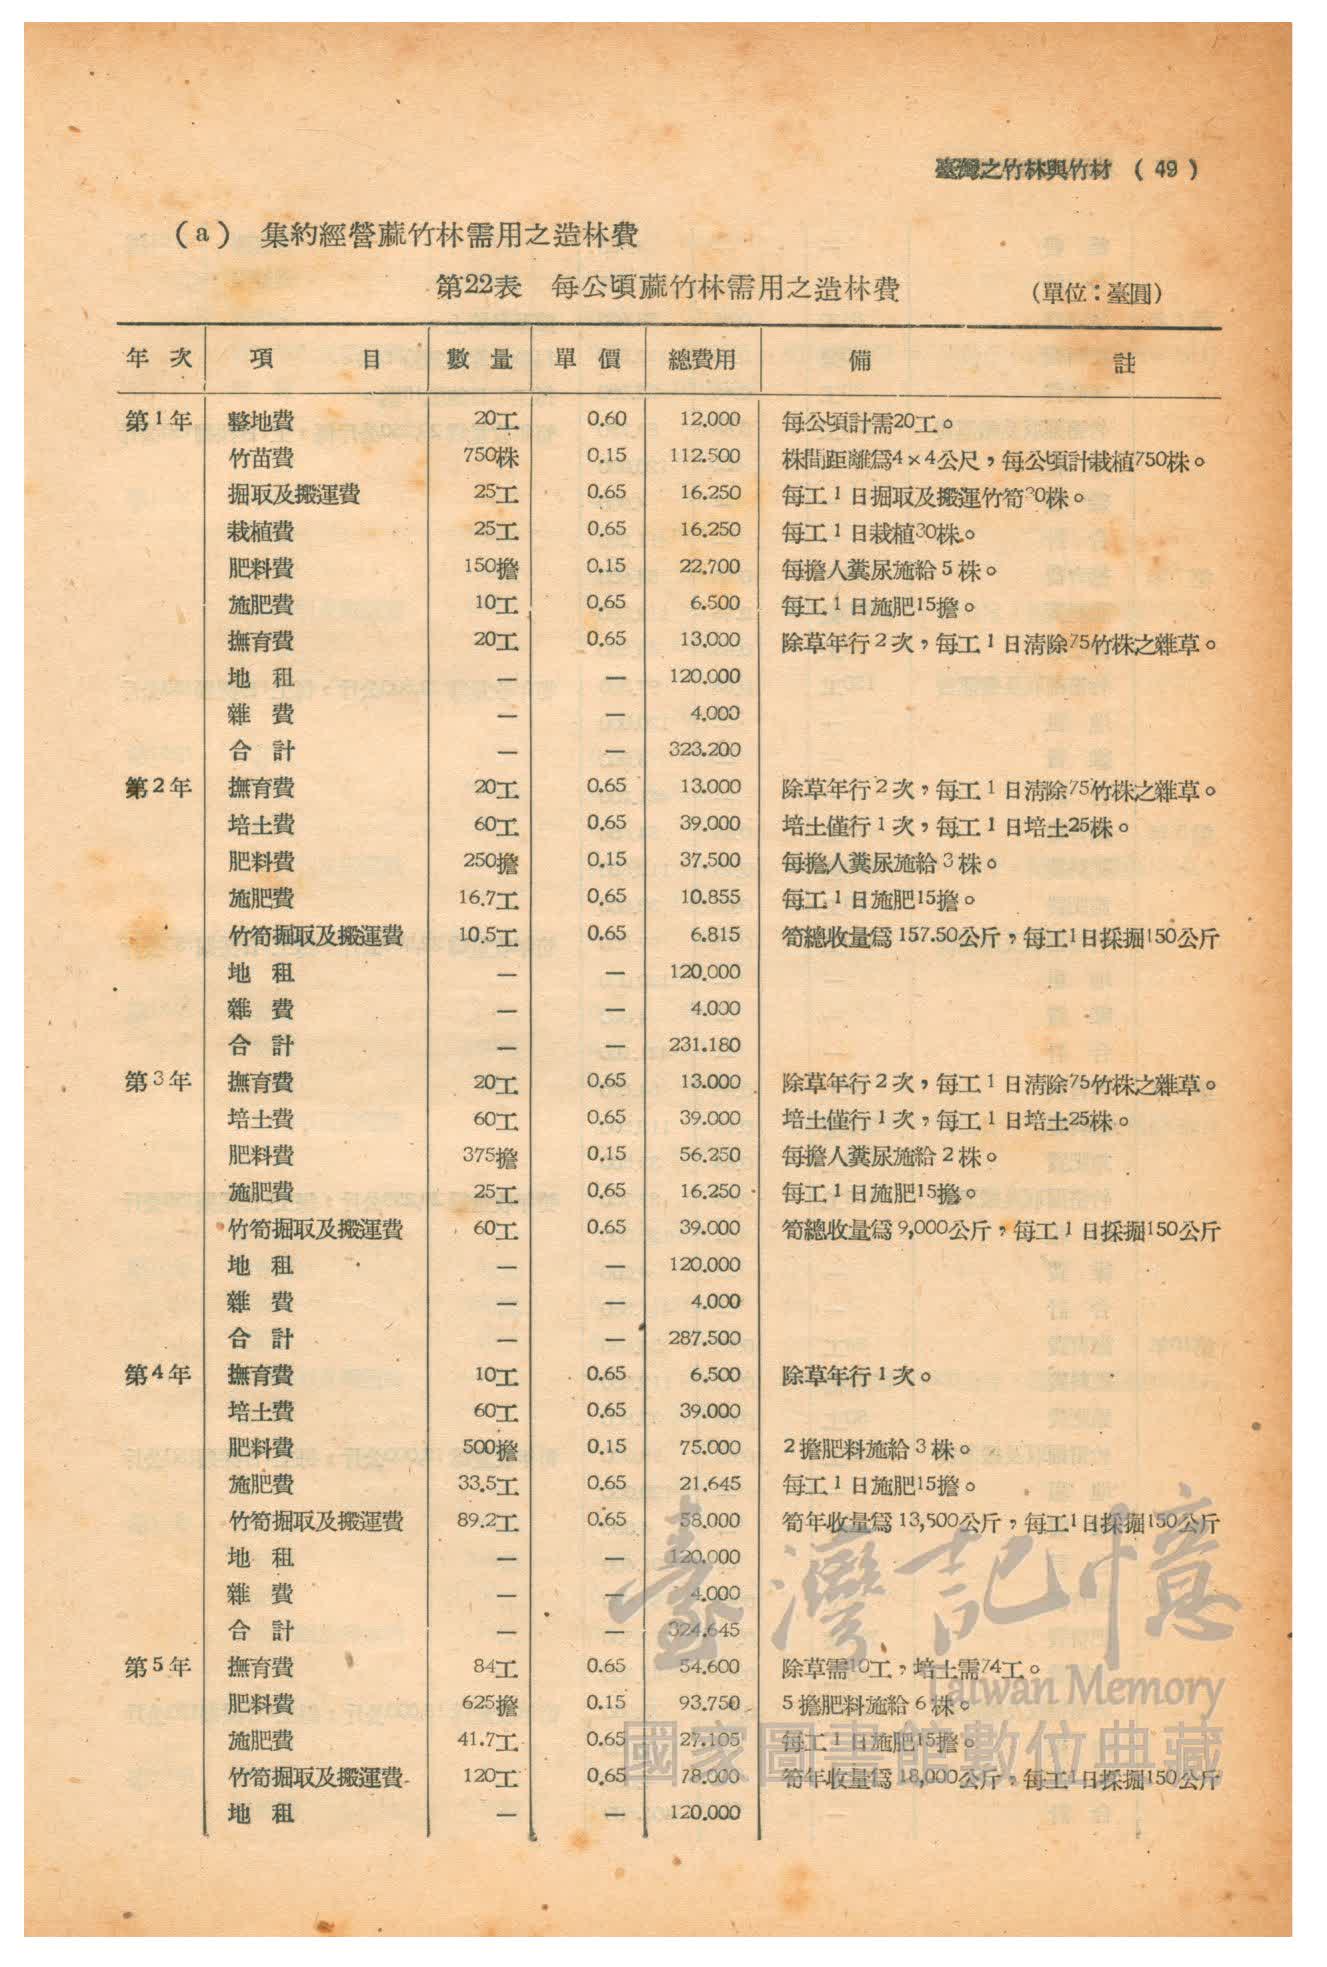 臺灣之竹林與竹材 ( 49 )
(a) 集約經營蔴竹林需用之造林費
第22表 每公頃蔴竹林需用之造林費 (單位：臺圓)
年次 項目 數量 單價 總費用 備註
第1年 整地費 20工 0.60 12.000 每公頃計需20工。
竹苗費 750株 0.15 112.500 株間距離爲4×4公尺，每公頃計栽植750株。
掘取及搬運費 25工 0.65 16.250 每工1日掘取及搬運竹筍30株。
栽植費 25工 0.65 16.250 每工1日栽植30株。
肥料費 150擔 0.15 22.700 每擔人糞尿施給5株。
施肥費 10工 0.65 6.500 每工1日施肥15擔。
撫育費 20工 0.65 13.000 除草年行2次，每工1日淸除75竹株之雜草。
地租 — — 120.000
雜費 — — 4.000
合計 — — 323.200
第2年 撫育費 20工 0.65 13.000 除草年行2次，每工1日淸除75竹株之雜草。
培土費 60工 0.65 39.000 培土僅行1次，每工1日培土25株。
肥料費 250擔 0.15 37.500 每擔人糞尿施給3株。
施肥費 16.7工 0.65 10.855 每工1日施肥15擔。
竹筍掘取及搬運費 10.5工 0.65 6.815 筍總收量爲157.50公斤，每工1日採掘150公斤
地租 — — 120.000
雜費 — — 4.000
合計 — — 231.180
第3年 撫育費 20工 0.65 13.000 除草年行2次，每工1日淸除75竹株之雜草。
培土費 60工 0.65 39.000 培土僅行1次，每工1日培土25株。
肥料費 375擔 0.15 56.250 每擔人糞尿施給2株。
施肥費 25工 0.65 16.250 每工1日施肥15擔。
竹筍掘取及搬運費 60工 0.65 39.000 筍總收量爲9,000公斤，每工1日採掘150公斤
地租 — — 120.000
雜費 — — 4.000
合計 — — 287.500
第4年 撫育費 10工 0.65 6.500 除草年行1次。
培土費 60工 0.65 39.000
肥料費 500擔 0.15 75.000 2擔肥料施給3株。
施肥費 33.5工 0.65 21.645 每工1日施肥15擔。
竹筍掘取及搬運費 89.2工 0.65 58.000 筍年收量爲13,500公斤，每工1日採掘150公斤
地租 — — 120.000
雜費 — — 4.000
合計 — — 324.645
第5年 撫育費 84工 0.65 54.600 除草需10工，培土需74工。
肥料費 625擔 0.15 93.750 5擔肥料施給6株。
施肥費 41.7工 0.65 27.105 每工1日施肥15擔。
竹筍掘取及搬運費 120工 0.65 78.000 筍年收量爲18,000公斤，每工1日採掘150公斤
地租 — — 120.000
臺灣記憶
Taiwan Memory
國家圖書館數位典藏